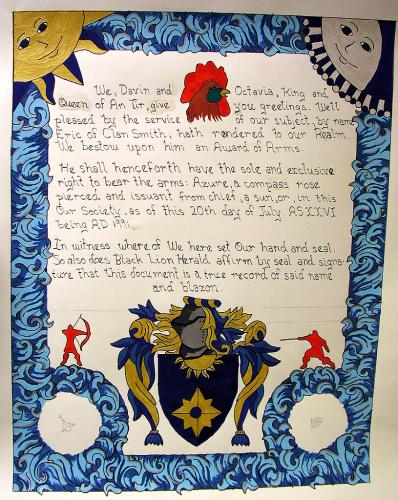 We, Davin and Octavia, King and
Queen of An Tir, give you greetings. Well
pleased by the service of our subject, by name
Eric of Clan Smith, hath rendered to our Realm.
We bestow upon him an Award of Arms.
He shall henceforth have the sole and exclusive
right to bear the arms: Azure, a compass rose
pierced and issuant from chief, a sun, or, in this
Our Society, as of this 20th day of July AS XXVI
being AD 1991.
In witness where of We here set Our hand and seal.
So also does Black Lion Herald affirm by seal and signa-
ture that this document is a true record of said name
and blazon.